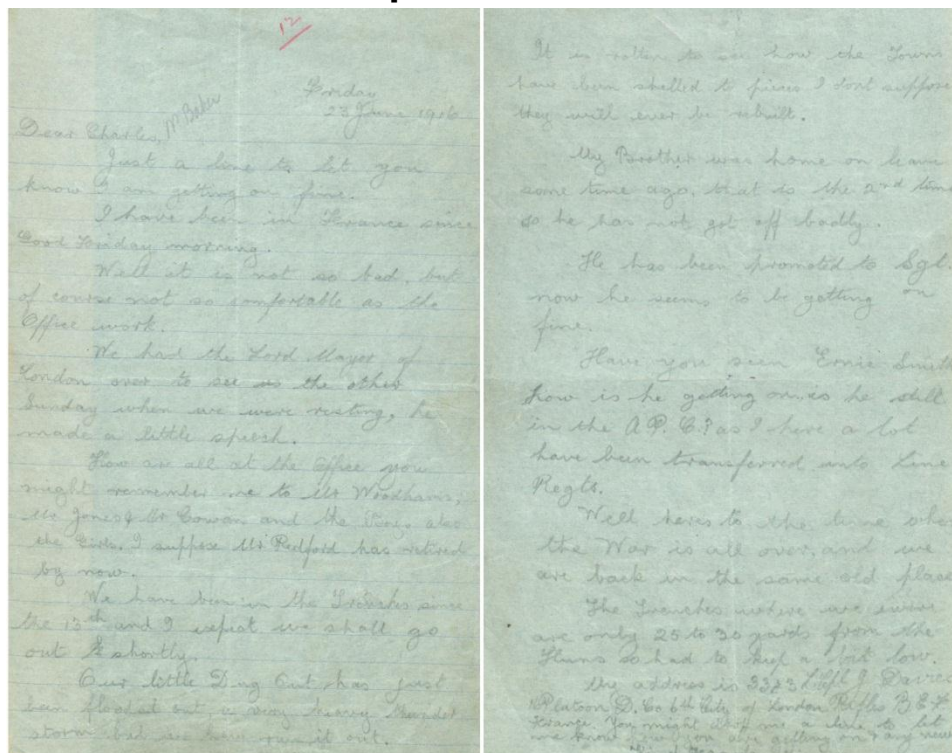 12
Friday
23 June 1916
Dear Charles, M Baker
Just a line to let you
know I am getting on fine.
I have been in France since
Good Friday morning.
Well it is not so bad, but
of course not so comfortable as the
Office work.
We had the Lord Mayor of
London over to see us the other
Sunday when we were resting, he
made a little speech.
How are all at the Office you
might remember me to Mr Woodhams,
Mr Jones & Mr Cowan and the Boys also
the Girls. I suppose Mr Redford has retired
by now.
We have been in the Trenches since
the 13th and I expect we shall go
out shortly.
Our little Dug Out has just
been flooded out, a very heavy thunder
storm but we have run it out.
It is rotten to see how the Towns
have been shelled to pieces I dont suppose
they will ever be rebuilt.
My Brother was home on leave
some time ago, that is the 2nd time
so he has not got off badly.
He has been promoted to Sgt
now he seems to be getting on
fine.
Have you seen Ernie Smith
how is he getting on, is he still
in the A.P.C.? as I here a lot
have been transferred into Line
Regts.
Well heres to the time when
the War is all over, and we
are back in the same old place
The Trenches where we
are only 25 to 30 yards from the
Huns so had to keep a bit low.
My address is 3323 L/Cpl J Davies
Platoon D. Co 6th City of London Rifles B E F
France. You might drop me a line to let
me know how you are getting on & any news